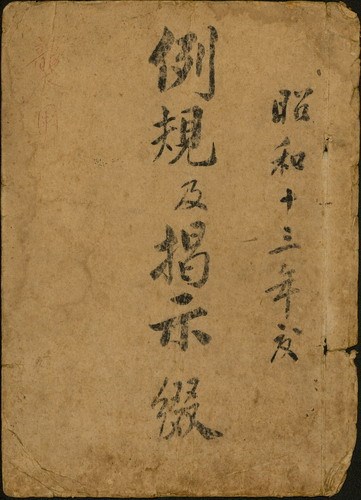 昭和十三年度
例規及掲示綴